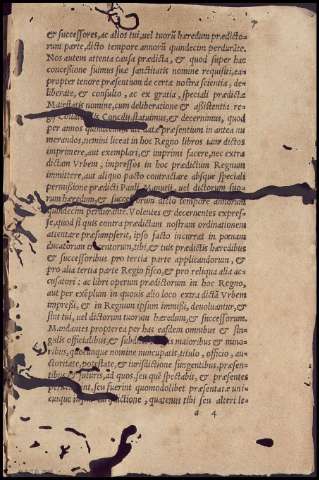 & successores, ac alios tui, uel tuorū hæredum prædicto-
rum parte, dicto tempore annorū quindecim perdurāte.
Nos autem attenta causa prædicta, & quod super hac
concessione suimus suæ sanctitatis nomine requisiti, ea-
propter tenore præsentium de certa nostra scientia, de-
liberate, & consulto, ac ex gratia, speciali prædictæ
Maiestatis nomine, cum deliberatione & assistentia re-
gij Concilij, statuimus, & decernimus, quod
per annos quindecim præsentium in antea nu
merandos, nemini liceat in hoc Regno libros tam dictos
imprimere, aut exemplari, & imprimi facere, nec extra
dictam Vrbem, impressos in hoc prædictum Regnum
immittere, aut aliquo pacto contractare absque speciali
permissione prædicti Pauli Manutij, uel dictorum suo-
rum hæredum, & successorum dicto tempore annorum
quindecim perdurante. Volentes & decernentes expres-
se, quod si quis contra prædictam nostram ordinationem
attentare præsumpserit, ipso facto incurrat in pœnam
ducatorum tibi, & tuis prædictis hæredibus
& successoribus pro tertia parte applicandorum, &
pro alia tertia parte Regio fisco, & pro reliqua alia ac-
cusatori: ac libri operum prædictorum in hoc Regno,
aut per exēplum in quouis alio loco extra dictā Vrbem
impressi, & in Regnum ipsum immissi, deuoluantur, &
sint tui, uel dictorum tuorum hæredum, & successorum.
Mandantes propterea per has easdem omnibus & sin-
gulis officialibus, & maioribus & mino-
ribus, quocunque nomine nuncupatis, titulo, officio, au-
ctoritate, potestate, & iurisdictione fungentibus, præsen-
tibus & futuris, ad quos, seu quē spectabit, & præsentes
seu fuerint quomodolibet præsentatæ uni-
cuique quatenus tibi seu alteri le-
a 4